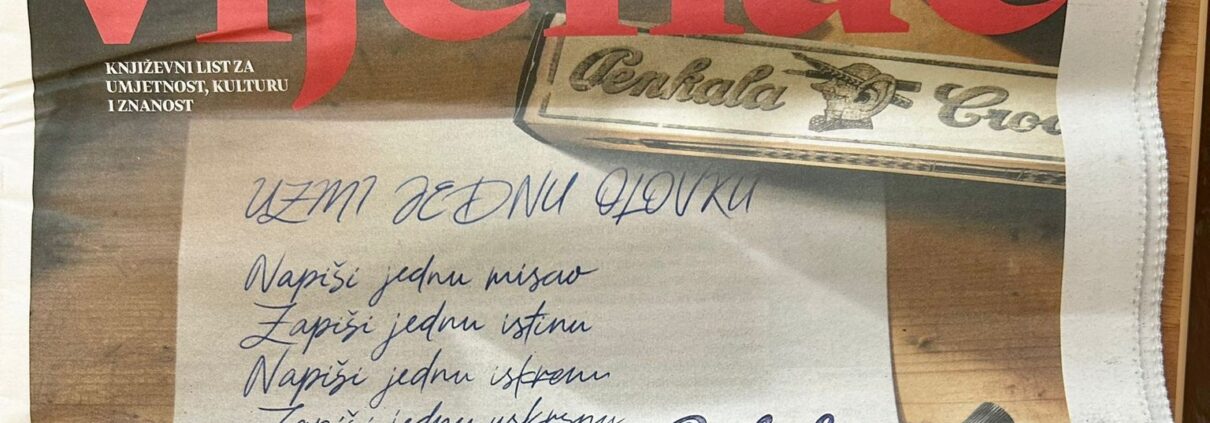 Vijenac
KNJIŽEVNI LIST ZA
UMJETNOST, KULTURU
I ZNANOST
Penkala
UZMI JEDNU OLOVKU
Napiši jednu misao
Zapiši jednu istinu
Napiši jednu iskrenu
Zapiši jednu uskrsnu